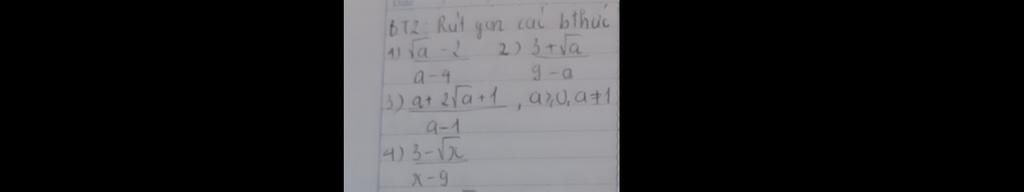 BT2: Rút gọn các bthức
1) √a - 2 / a - 4 2) 3 + √a / 9 - a
3) a + 2√a + 1 / a - 1 , a ≥ 0, a ≠ 1
4) 3 - √x / x - 9